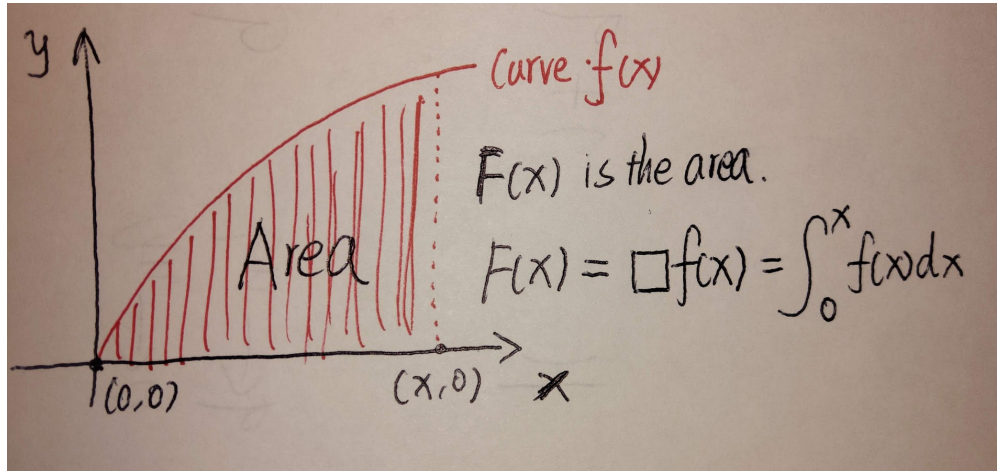 y
Curve f(x)
F(x) is the area.
Area
F(x) = □f(x) = ∫₀ˣ f(x)dx
(0,0)
(x,0)
x